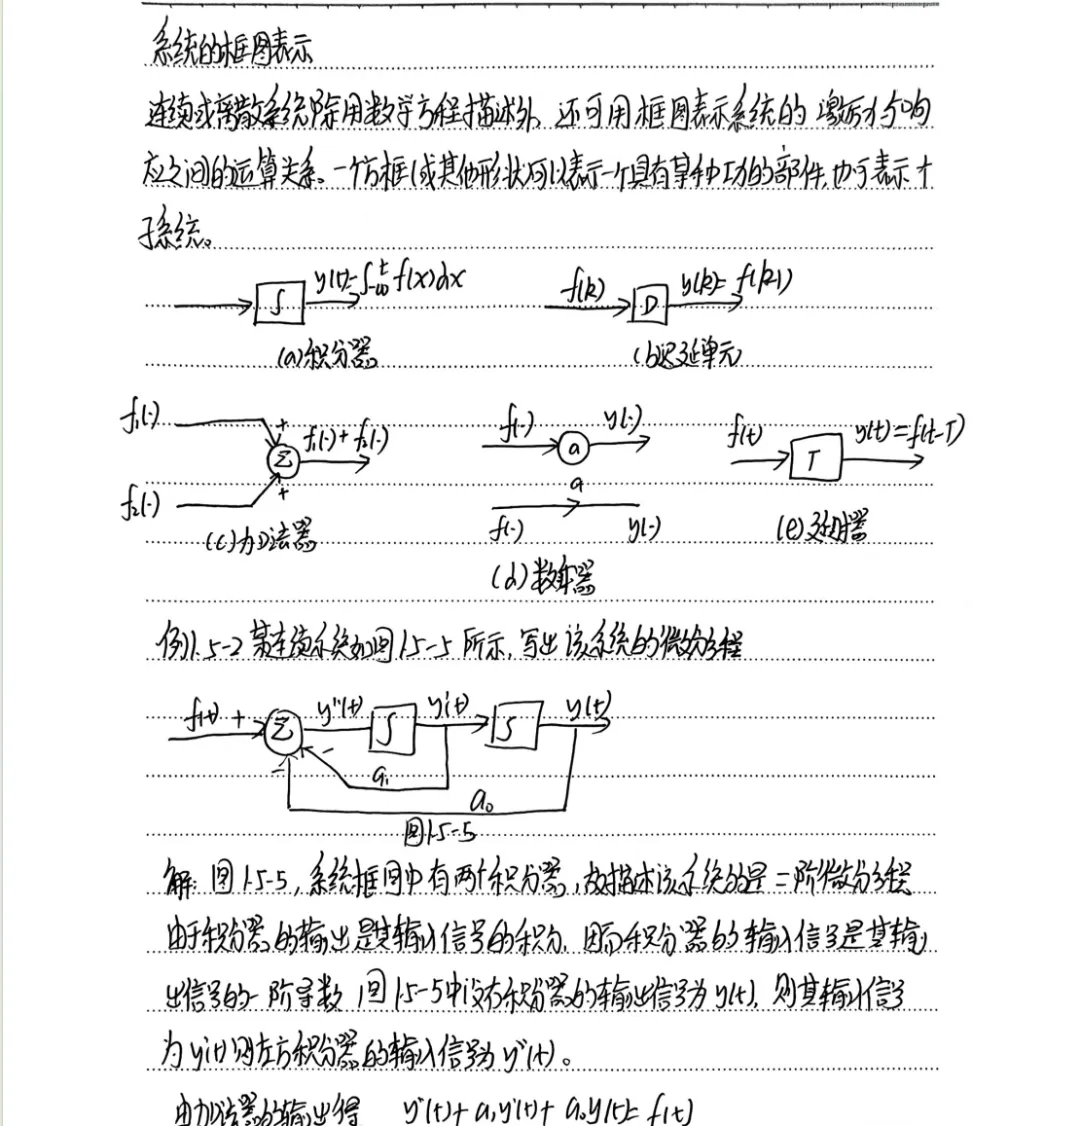 系统的框图表示
连续或离散系统除用数学方程描述外,还可用框图表示系统的激励与响
应之间的运算关系。一个方框(或其他形状)可以表示一个具有某种功的部件,也可表示个
子系统。
∫ y(t)=∫-∞^t f(x)dx f(k) D y(k)=f(k-1)
(a)积分器 (b)迟延单元
f₁(·) + Σ f₁(·)+f₂(·) f(·) a y(·) f(t) T y(t)=f(t-T)
f₂(·) + a
f(·) y(·)
(c)加法器 (e)延时器
(d)数乘器
例1.5-2 某连续系统如图1.5-5所示,写出该系统的微分方程
f(t) + Σ y''(t) ∫ y'(t) ∫ y(t)
- - a₁
a₀
图1.5-5
解:图1.5-5,系统框图中有两个积分器,故描述该系统的是二阶微分方程
由于积分器的输出是其输入信号的积分,因而积分器的输入信号是其输
出信号的一阶导数,图1.5-5中设右积分器的输出信号为y(t),则其输入信号
为y'(t)则左方积分器的输入信号为y''(t)。
由加法器的输出得 y''(t)+a₁y'(t)+a₀y(t)=f(t)